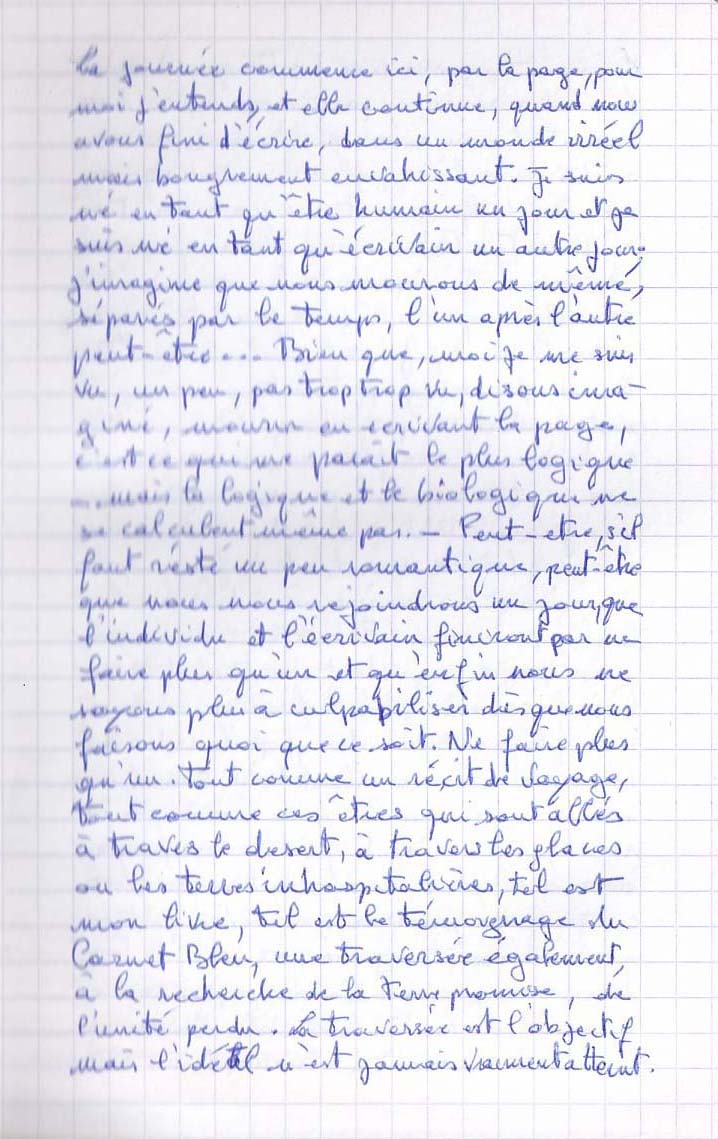 La journée commence ici, par la page, pour
moi j'entends, et elle continue, quand nous
avons fini d'écrire, dans un monde irréel
mais bougrement envahissant. Je suis
né en tant qu'être humain un jour et je
suis né en tant qu'écrivain un autre jour,
j'imagine que nous mourrons de même,
séparés par le temps, l'un après l'autre
peut-être... Bien que, moi je me suis
vu, un peu, pas trop trop vu, disons ima-
giné, mourir en écrivant la page,
c'est ce qui me paraît le plus logique
... mais la logique et le biologique ne
se calculent même pas. — Peut-etre, s'il
faut resté un peu romantique, peut-être
que nous nous rejoindrons un jour, que
l'individu et l'écrivain finiront par ne
faire plus qu'un et qu'enfin nous ne
soyons plus à culpabiliser dès que nous
faisons quoi que ce soit. Ne faire plus
qu'un. Tout comme un récit de voyage,
tout comme ces êtres qui sont allés
à travers le desert, à travers les glaces
ou les terres inhospitalières, tel est
mon livre, tel est le témoignage du
Carnet Bleu, une traversée également,
à la recherche de la Terre promise, de
l'unité perdu. La traversée est l'objectif
mais l'idéal n'est jamais vraiment atteint.